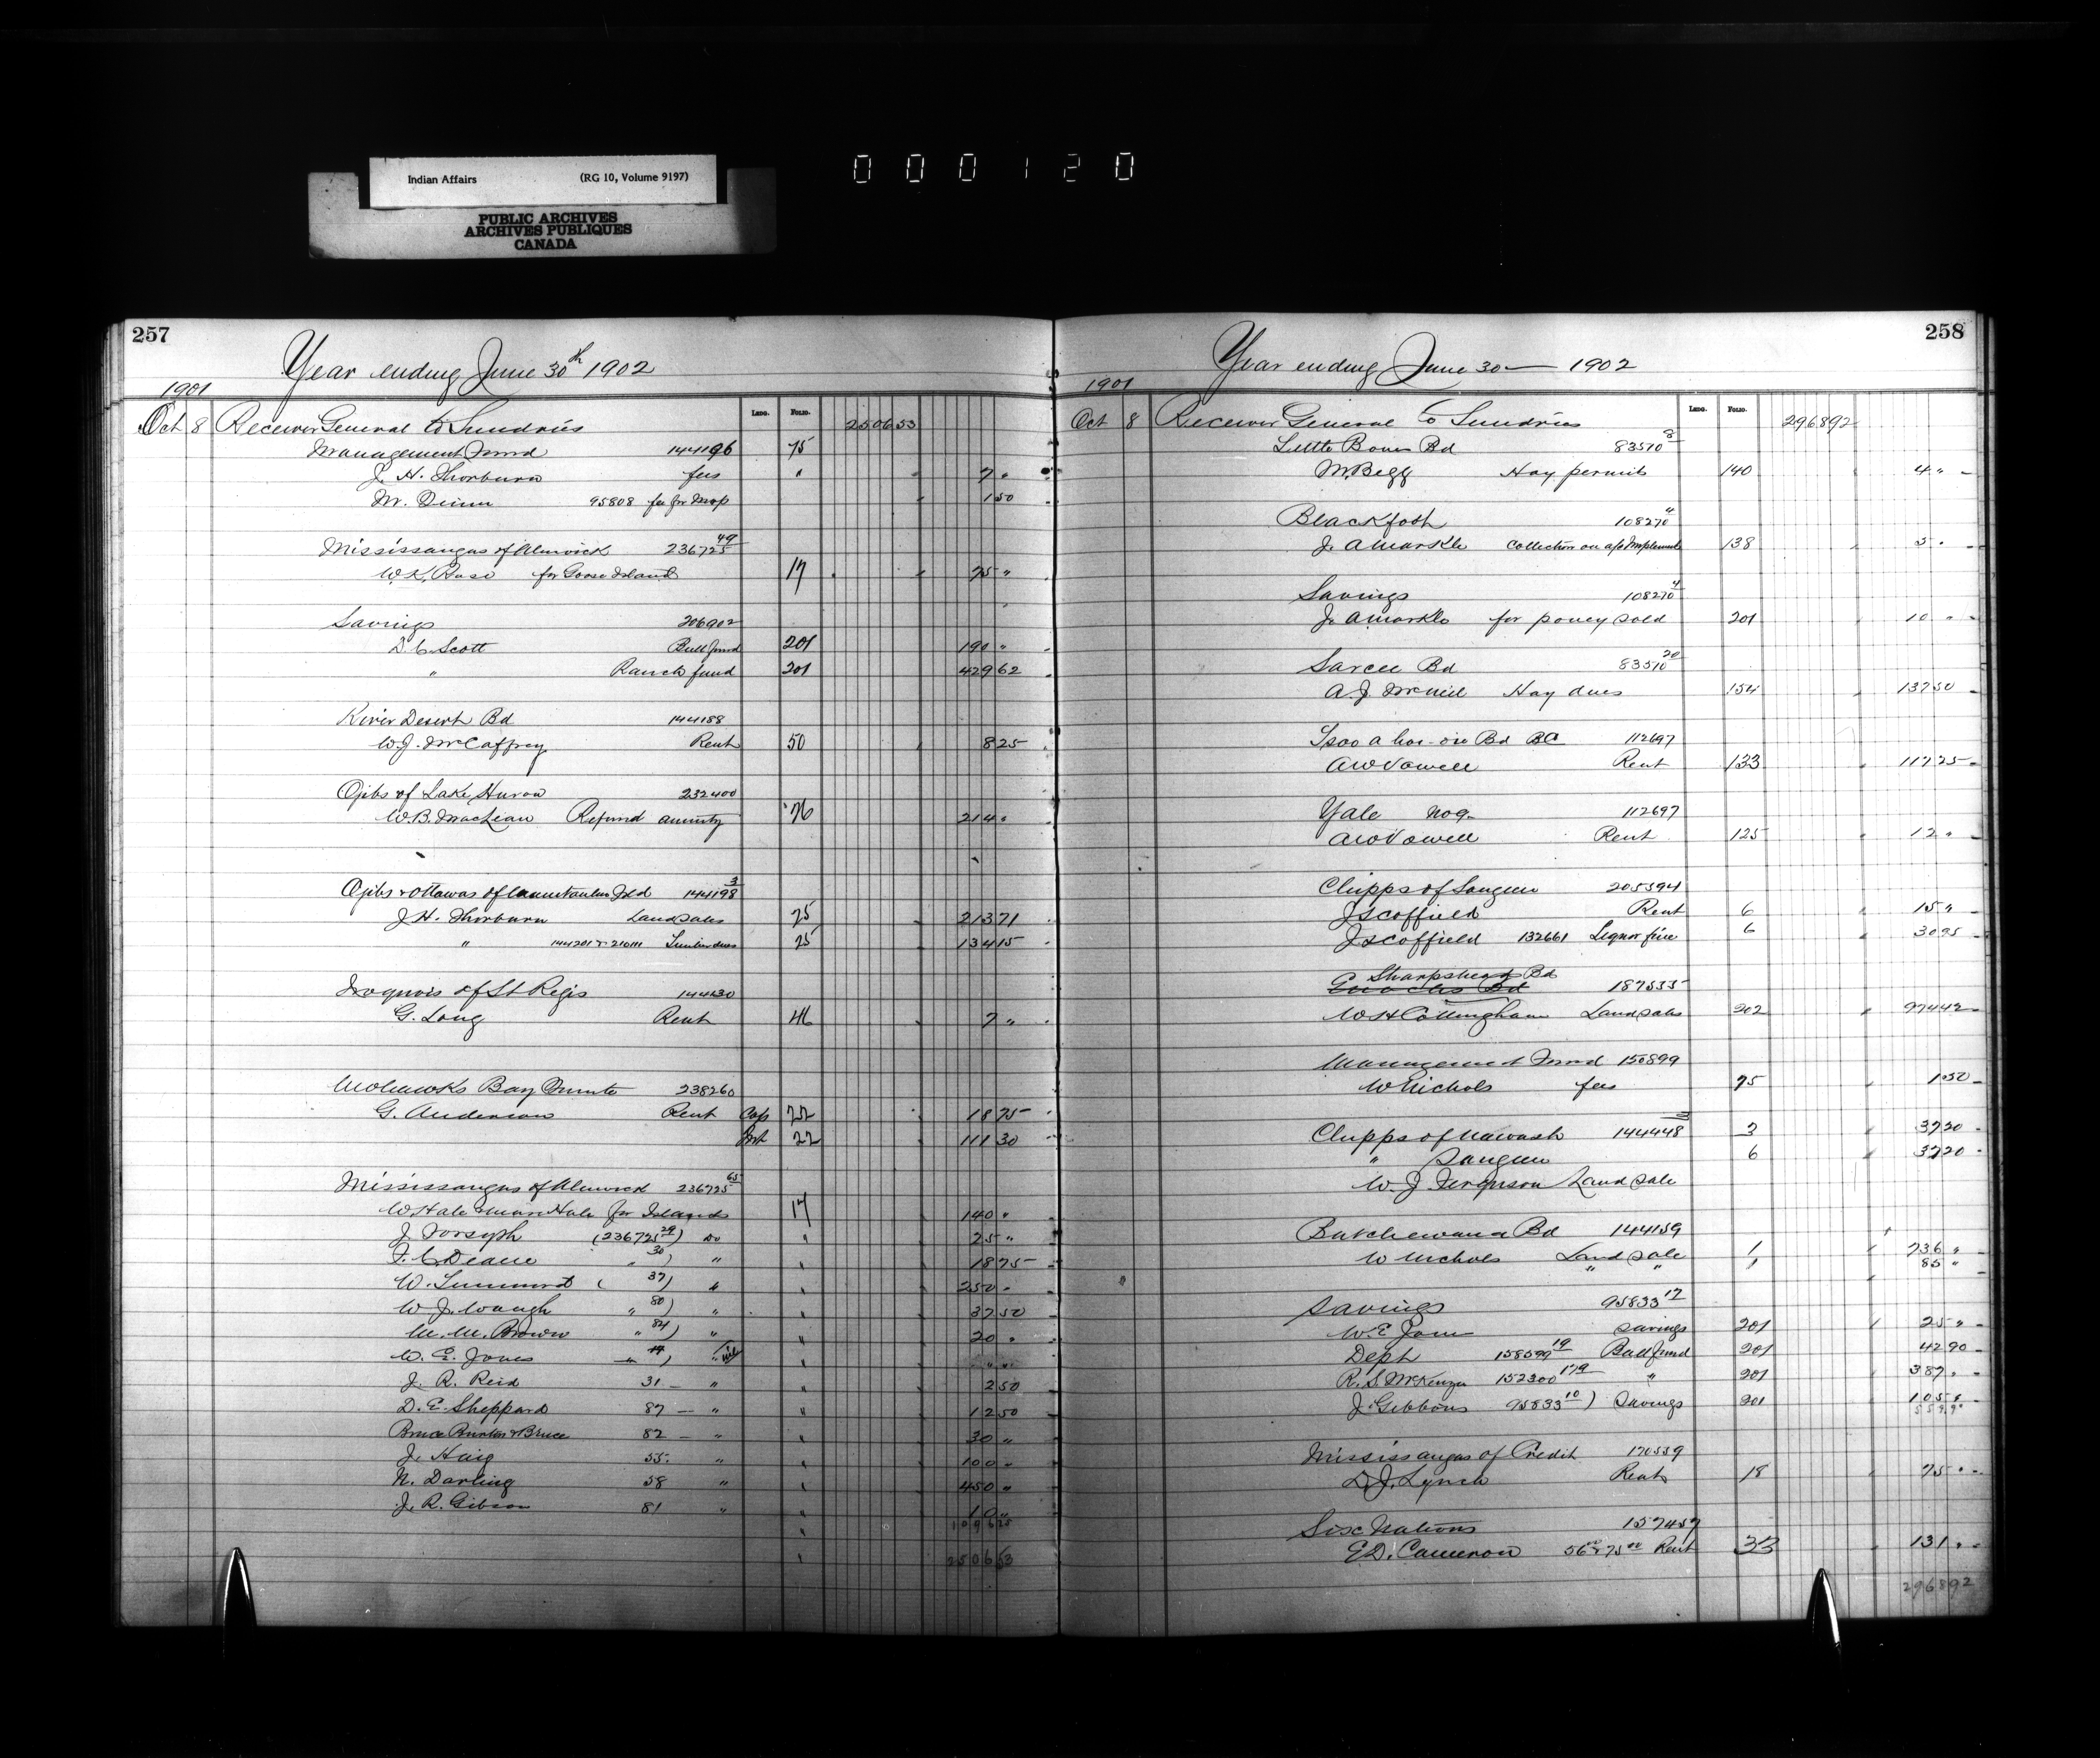 Indian Affairs (RG 10, Volume 9197)
PUBLIC ARCHIVES
ARCHIVES PUBLIQUES
CANADA
000120
257
Year ending June 30th 1902
1901
Ledg. Folio.
Oct 8 Receiver General to Sundries 2506 53
Management Fund 144196 75
J. H. Thorburn fees " 7 "
Mr. Quinn 95808 fee for Map 1 50
Mississaugas of Alnwick 236725 49
W. K. for Goose Island 17 75 "
Savings 206902
D. C. Scott Bull fund 201 190 "
" Ranch fund 201 429 62
River Desert Bd 144188
W. J. McCaffrey Rent 50 8 25
Ojibs of Lake Huron 232400
W. B. MacLean Refund annuity 76 214 "
Ojibs & Ottawas of Manitoulin Isld 144198 3
J. H. Thorburn Land sales 25 213 71
" 144201 & 210111 Timber dues 25 134 15
Iroquois of St Regis 144130
G. Long Rent 46 7 "
Mohawks Bay Quinte 238260
G. Anderson Rent Cap 22 18 75
Int 22 111 30
Mississaugas of Alnwick 236725 65
W Hale & Hale for Islands 17 140 "
J. Forsyth (236725 29) Do 25 "
F. C. Deane " 30) " 18 75
W. ( 37) " 250 "
W. J. Waugh " 80) " 37 50
M. M. Brown " 84) " 20 "
W. E. Jones " ) " nil " "
J. R. Reid 31 — " 2 50
D. E. Sheppard 87 — " 12 50
Bruce Burton & Bruce 82 — " 30 "
J. Haig 55 " 100 "
N. Darling 58 " 450 "
J. R. Gibson 81 " 10 "
1096 25
2506 53
258
Year ending June 30 — 1902
1901
Ledg. Folio.
Oct 8 Receiver General to Sundries 2968 92
Little Bones Bd 83570 8
M. Begg Hay permit 140 4 "
Blackfoot 108270 4
J. A Markle Collection on a/c Implements 138 5 "
Savings 108270 4
J. A Markle for poney sold 201 10 "
Sarcee Bd 83570 20
A. J. McNeil Hay dues 154 137 50
Bd BC 112697
A W Vowell Rent 133 117 25
Yale No 9 112697
A W Vowell Rent 125 12 "
Chipps of Saugeen 205394
J Scoffield Rent 6 15 "
J Scoffield 132661 Liquor fine 6 30 95
Sharpshead Bd
Enochs Bd 187535
W H Cottingham Land sales 202 974 42
Management Fund 150899
W Nichols fees 75 1 50
Chipps of Nawash 144448 3 37 20
" Saugeen 6 37 20
W. J. Ferguson Land sale
Batchewana Bd 144159
W Nichols Land sale 1 736 "
" " 1 85 "
Savings 95833 17
W. E. Jones Savings 201 25 "
Dept 158599 19 Bull fund 201 42 90
R. S. McKenzie 152300 179 " 201 387 "
J. Gibbons 95833 10) Savings 201 105 "
559 90
Mississaugas of Credit 170539
D. J. Lynch Rent 18 75 "
Six Nations 157457
E D. Cameron 56 00 & 75 00 Rent 33 131 "
2968 92